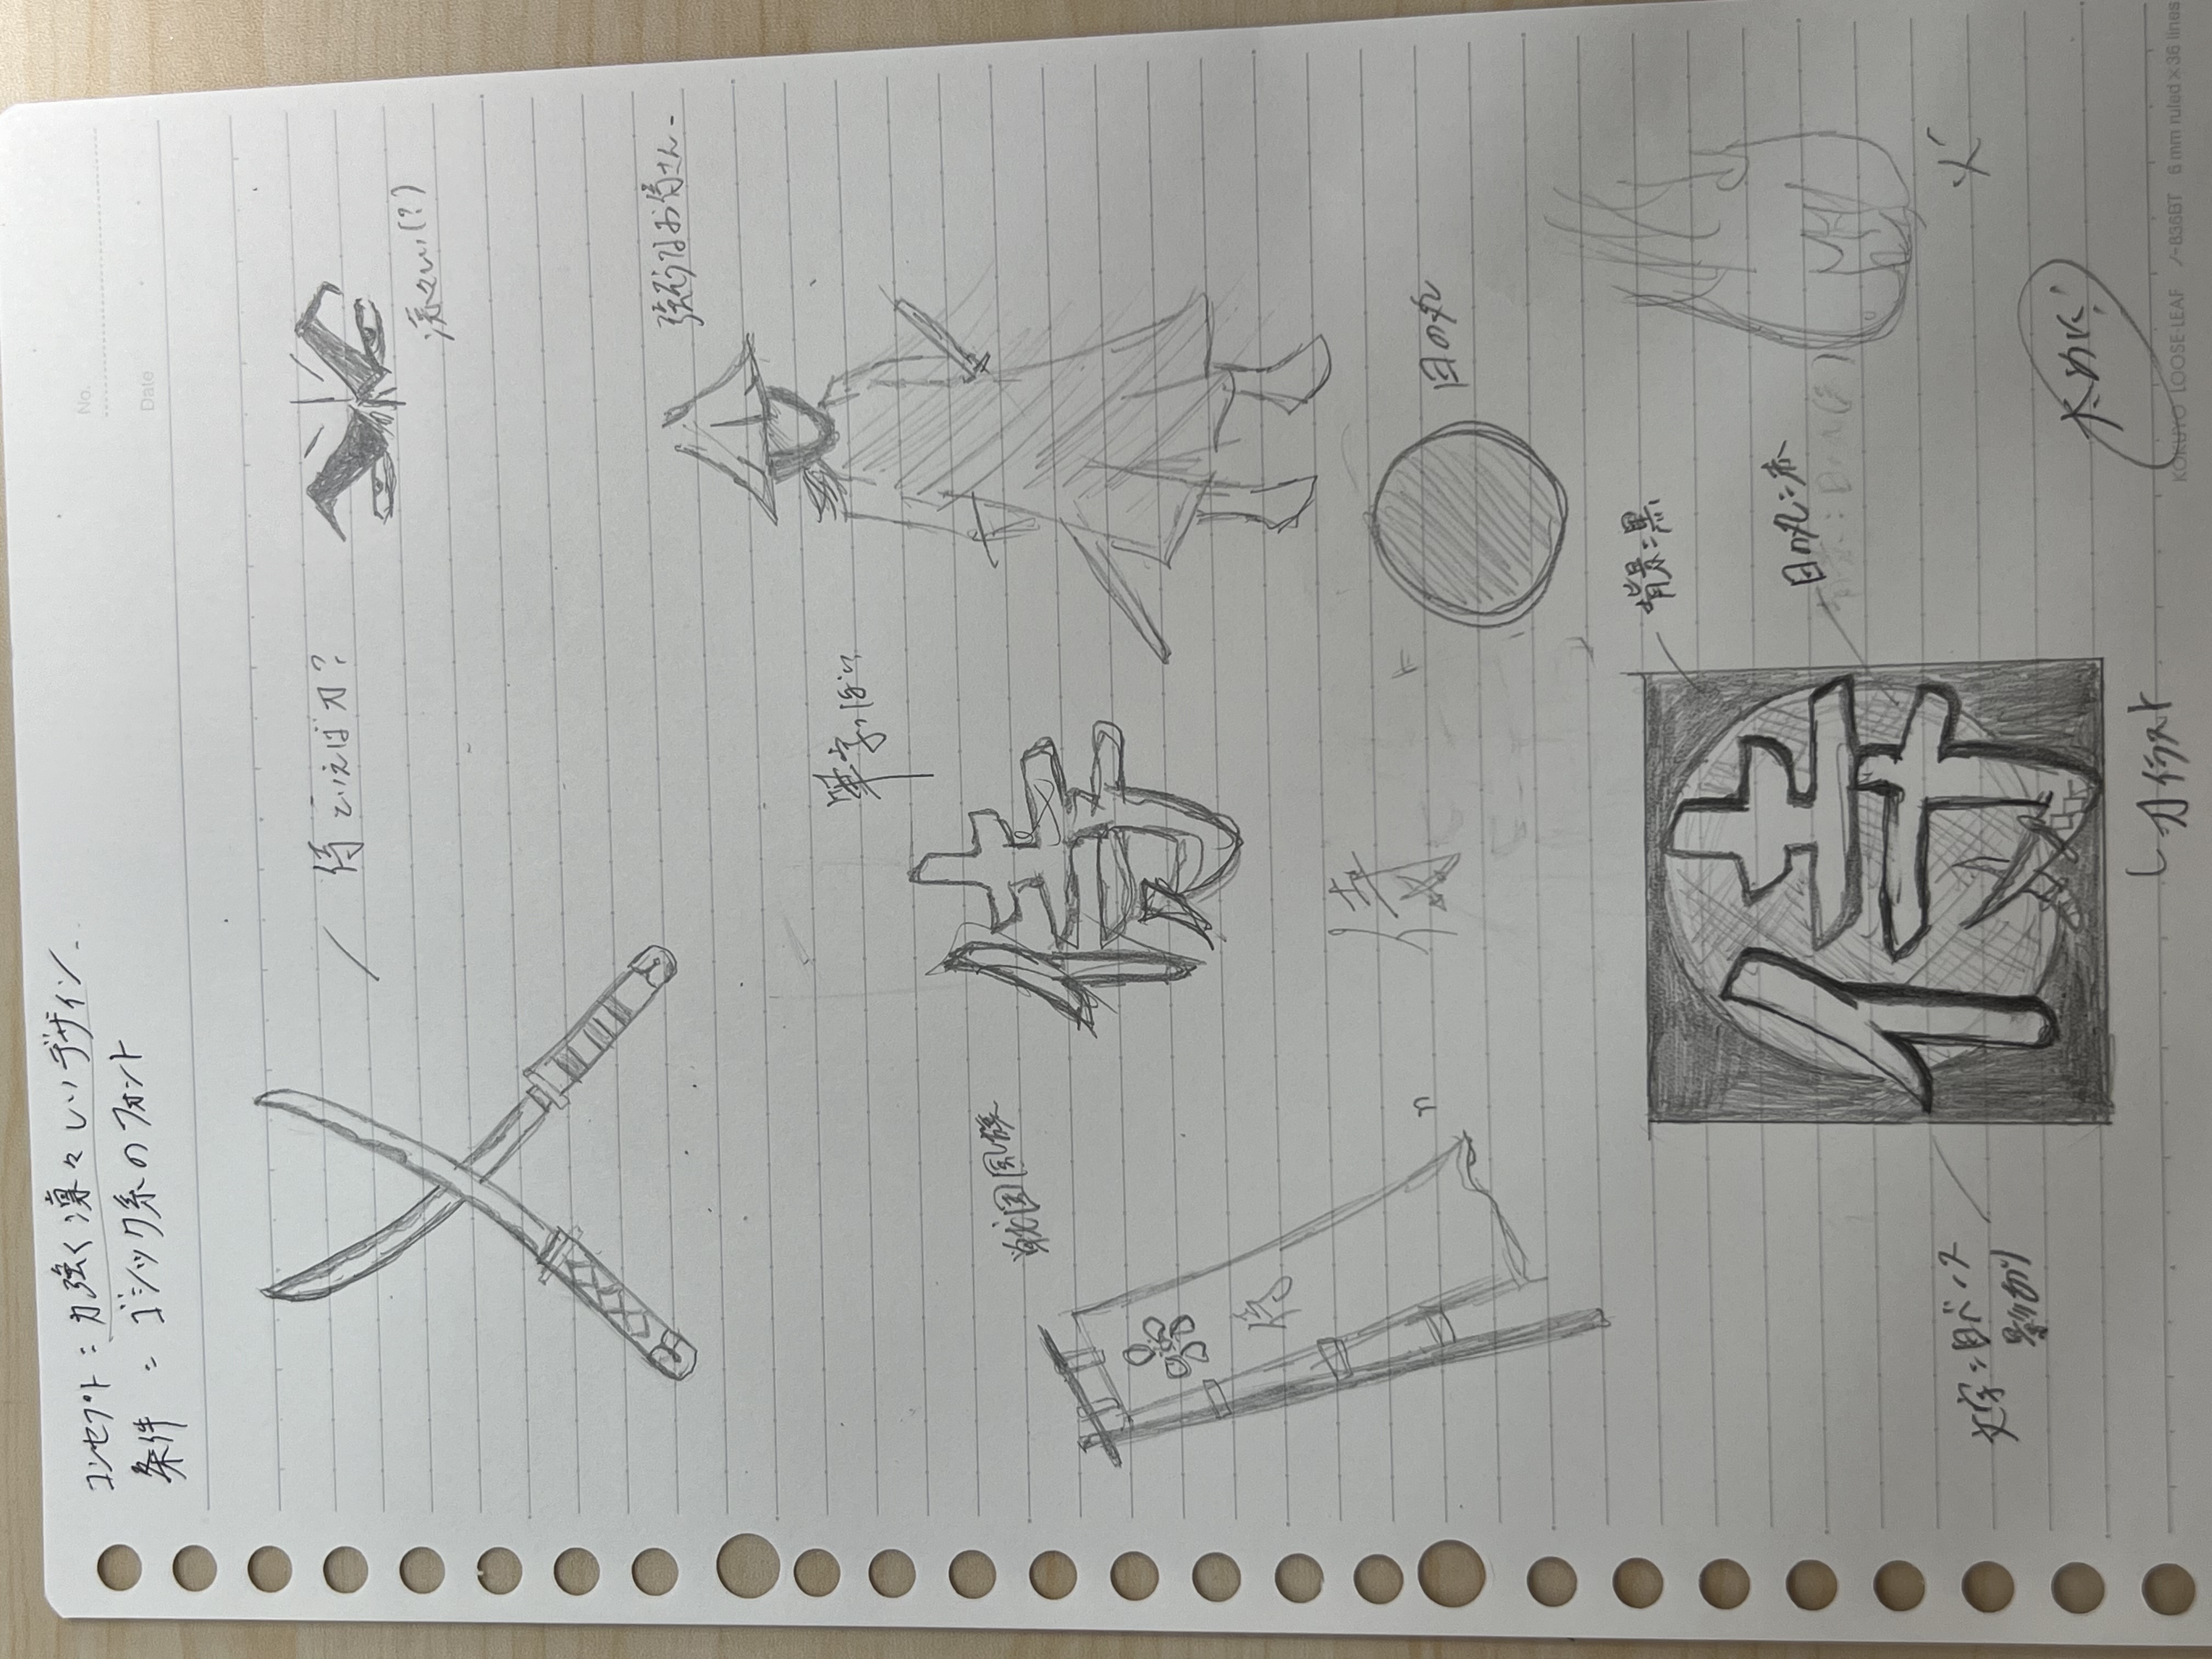 コンセプト：力強く凛々しいデザイン
条件：ゴシック系のフォント
No.
Date
侍といえば刀？
凛々しい(？)
強そうなお侍さん
筆字っぽい
侍
戦国風旗
侍
侍
日の丸
背景：黒
侍
日の丸：赤
文字：白ベース
影あり
火
太めに！
刀イラスト
KOKUYO LOOSE-LEAF ノ-836BT 6 mm ruled×36 lines